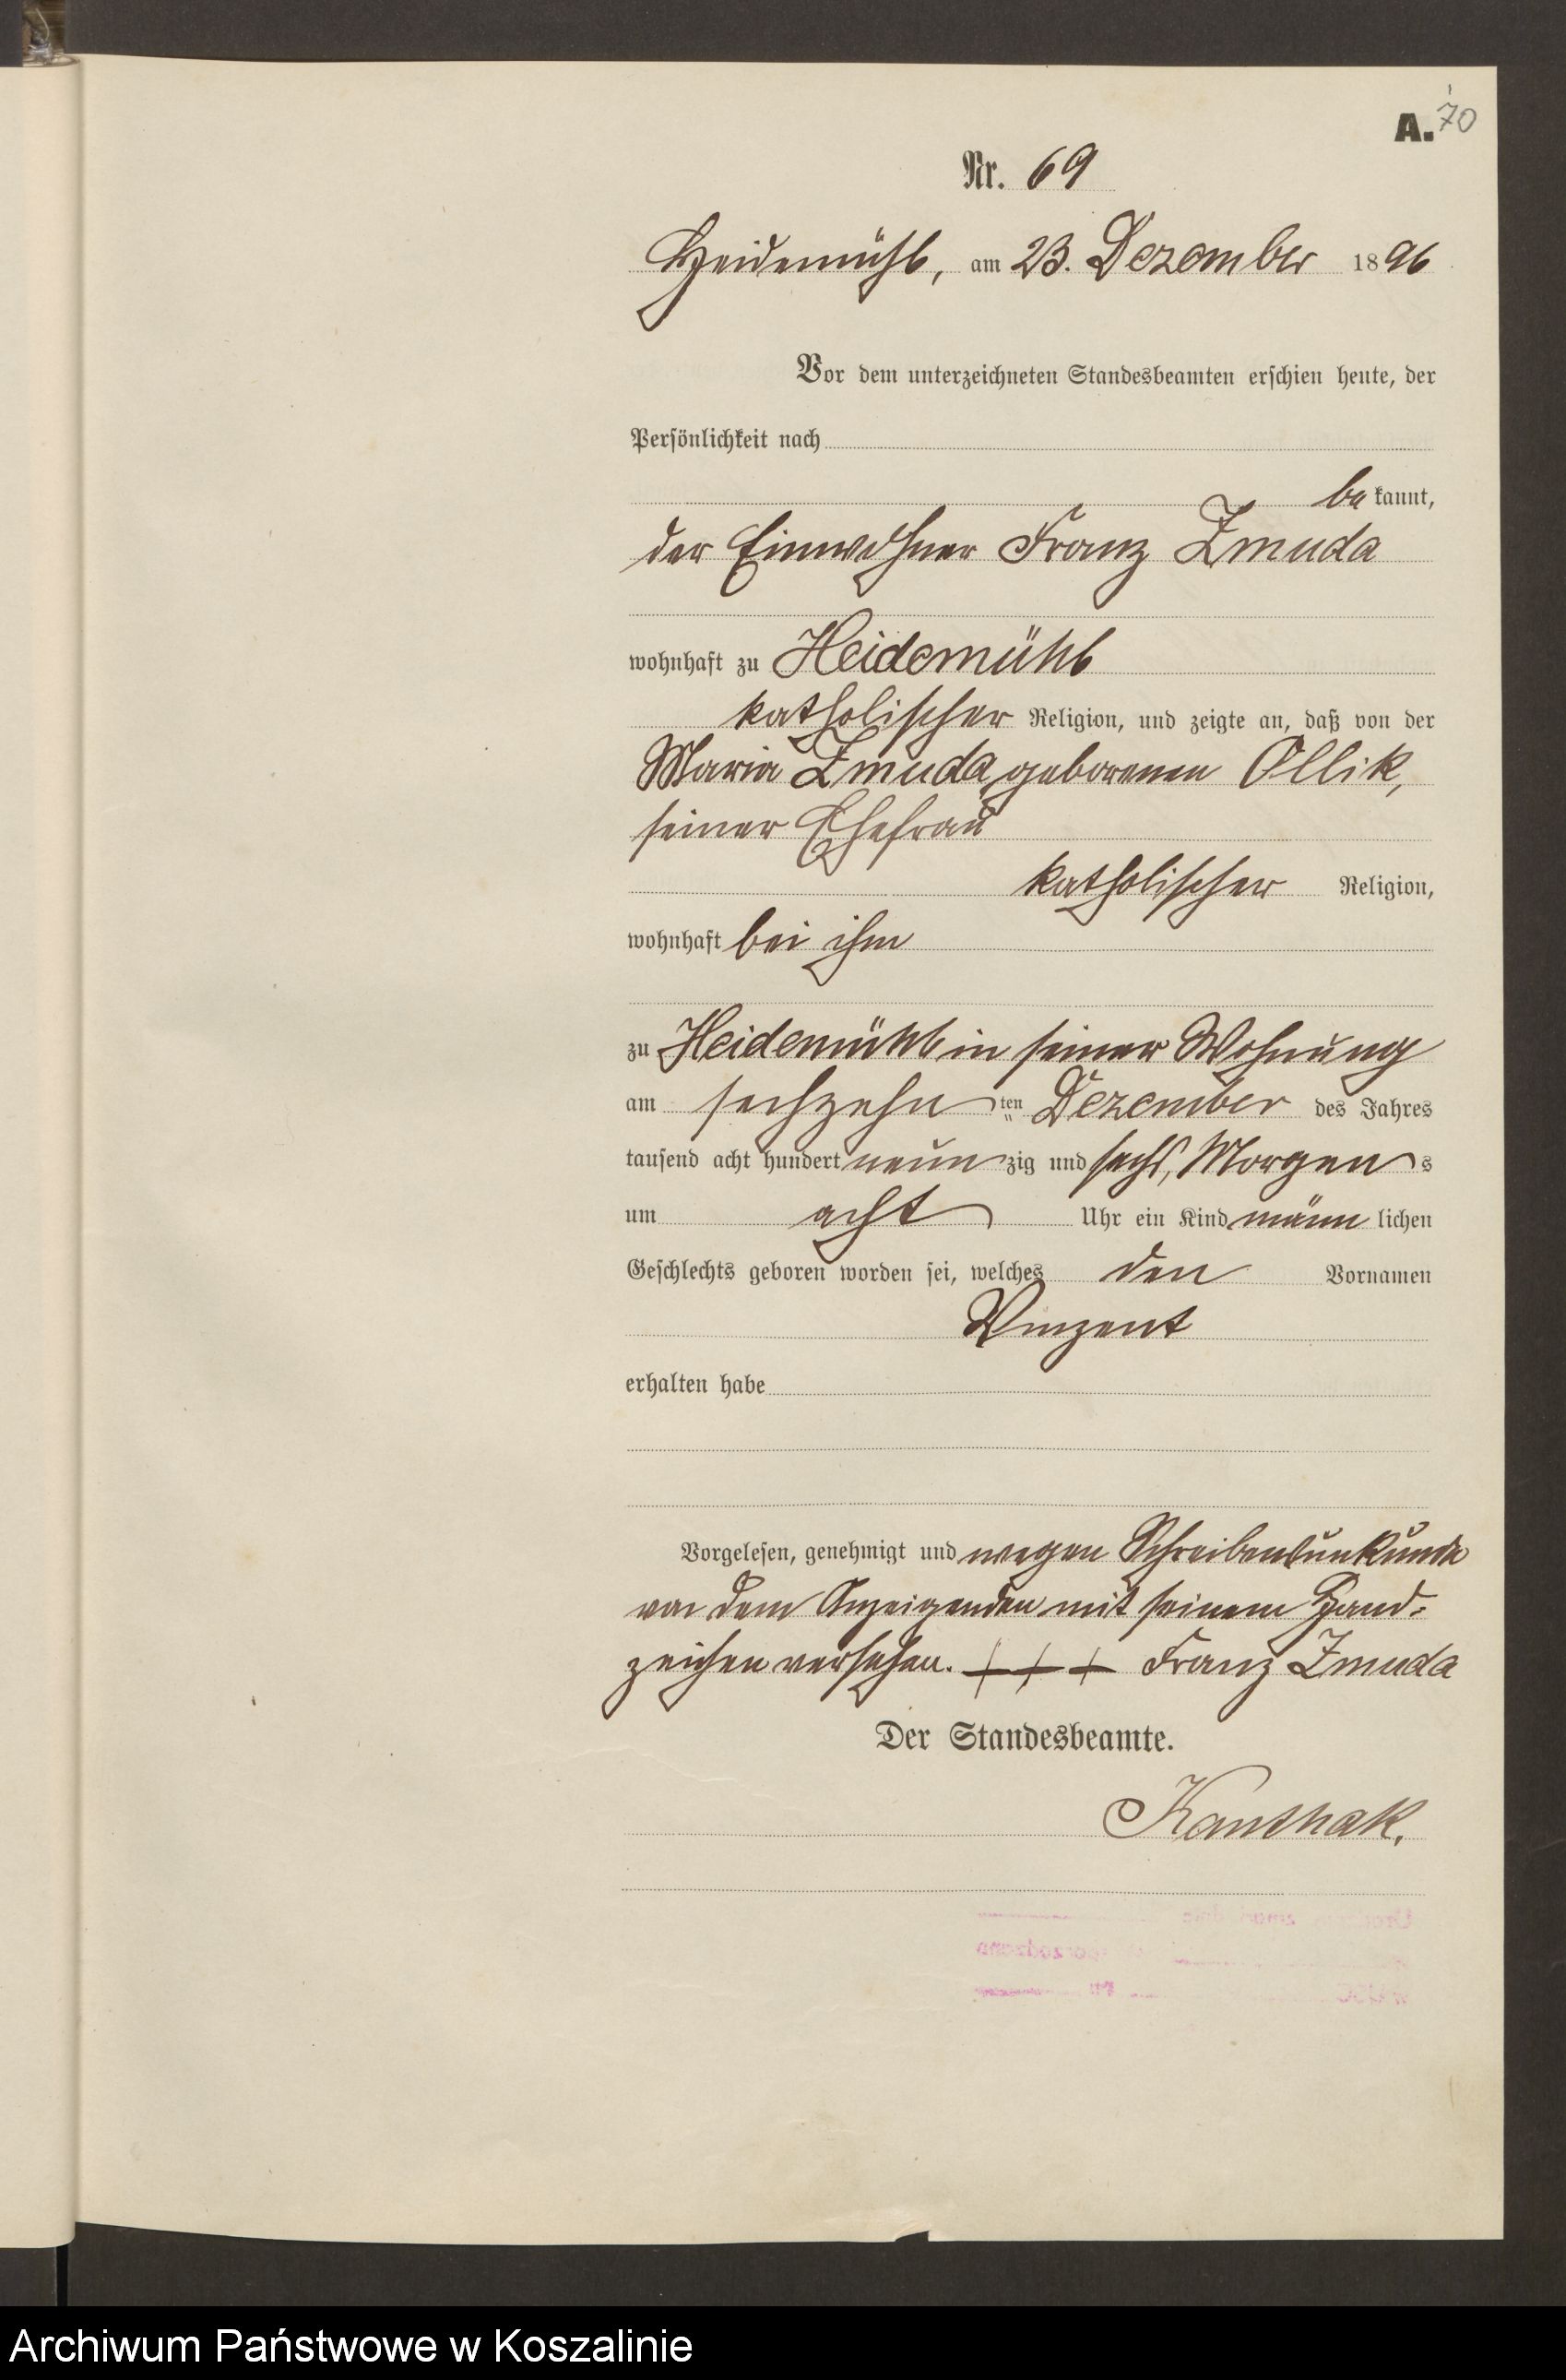 A. 70
Nr. 69
Heidemühl, am 23. Dezember 1896
Vor dem unterzeichneten Standesbeamten erschien heute, der
Persönlichkeit nach
bekannt,
der Einwohner Franz Zmuda
wohnhaft zu Heidemühl
katholischer Religion, und zeigte an, daß von der
Maria Zmuda geborenen Ollik,
seiner Ehefrau
katholischer Religion,
wohnhaft bei ihm
zu Heidemühl in seiner Wohnung
am sechzehn ten Dezember des Jahres
tausend acht hundert neun zig und sechs, Morgens
um acht Uhr ein Kind männlichen
Geschlechts geboren worden sei, welches den Vornamen
Vinzent
erhalten habe
Vorgelesen, genehmigt und wegen Schreibensunkunde
von dem Anzeigenden mit seinem Hand-
zeichen versehen. +++ Franz Zmuda
Der Standesbeamte.
Kanthak.
Archiwum Państwowe w Koszalinie